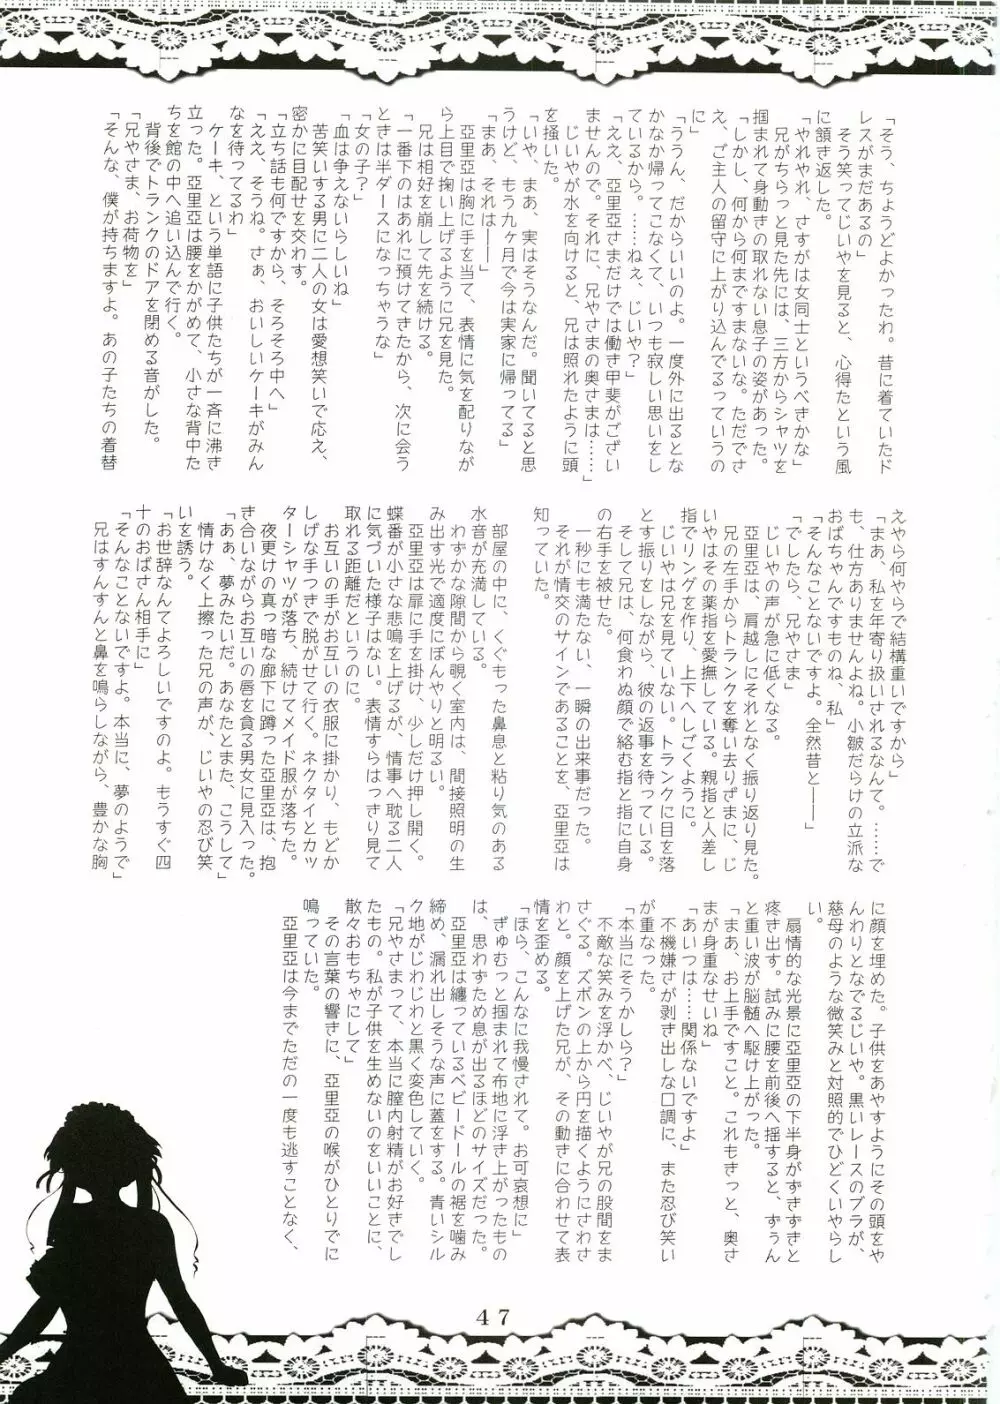 「そう、ちょうどよかったわ。昔に着ていたド
レスがまだあるの」
そう笑ってじいやを見ると、心得たという風
に頷き返した。
「やれやれ、さすがは女同士というべきかな」
兄がちらっと見た先には、三方からシャツを
掴まれて身動きの取れない息子の姿があった。
「しかし、何から何まですまないな。ただでさ
え、ご主人の留守に上がり込んでるっていうの
に」
「ううん、だからいいのよ。一度外に出るとな
かなか帰ってこなくて、いつも寂しい思いをし
ているから。……ねえ、じいや？」
「ええ、亞里亞さまだけでは働き甲斐がござい
ませんので。それに、兄やさまの奥さまは……」
じいやが水を向けると、兄は照れたように頭
を掻いた。
「いや、まあ、実はそうなんだ。聞いてると思
うけど、もう九ヶ月で今は実家に帰ってる」
「まあ、それは――」
亞里亞は胸に手を当て、表情に気を配りなが
ら上目で掬い上げるように兄を見た。
兄は相好を崩して先を続ける。
「一番下のはあれに預けてきたから、次に会う
ときは半ダースになっちゃうな」
「女の子？」
「血は争えないらしいね」
苦笑いする男に二人の女は愛想笑いで応え、
密かに目配せを交わす。
「立ち話も何ですから、そろそろ中へ」
「ええ、そうね。さぁ、おいしいケーキがみん
なを待ってるわ」
ケーキ、という単語に子供たちが一斉に沸き
立った。亞里亞は腰をかがめて、小さな背中た
ちを館の中へ追い込んで行く。
背後でトランクのドアを閉める音がした。
「兄やさま、お荷物を」
「そんな、僕が持ちますよ。あの子たちの着替
えやら何やらで結構重いですから」
「まあ、私を年寄り扱いされるなんて。……で
も、仕方ありませんよね。小皺だらけの立派な
おばちゃんですものね、私」
「そんなことないですよ。全然昔と――」
「でしたら、兄やさま」
じいやの声が急に低くなる。
亞里亞は、肩越しにそれとなく振り返り見た。
兄の左手からトランクを奪い去りざまに、じ
いやはその薬指を愛撫している。親指と人差し
指でリングを作り、上下へしごくように。
じいやは兄を見ていない。トランクに目を落
とす振りをしながら、彼の返事を待っている。
そして兄は、何食わぬ顔で絡む指と指に自身
の右手を被せた。
一秒にも満たない、一瞬の出来事だった。
それが情交のサインであることを、亞里亞は
知っていた。
部屋の中に、くぐもった鼻息と粘り気のある
水音が充満している。
わずかな隙間から覗く室内は、間接照明の生
み出す光で適度にぼんやりと明るい。
亞里亞は扉に手を掛け、少しだけ押し開く。
蝶番が小さな悲鳴を上げるが、情事へ耽る二人
に気づいた様子はない。表情すらはっきり見て
取れる距離だというのに。
お互いの手がお互いの衣服に掛かり、もどか
しげな手つきで脱がせて行く。ネクタイとカッ
ターシャツが落ち、続けてメイド服が落ちた。
夜更けの真っ暗な廊下に蹲った亞里亞は、抱
き合いながらお互いの唇を貪る男女に見入った。
「あぁ、夢みたいだ。あなたとまた、こうして」
情けなく上擦った兄の声が、じいやの忍び笑
いを誘う。
「お世辞なんてよろしいですのよ。もうすぐ四
十のおばさん相手に」
「そんなことないですよ。本当に、夢のようで」
兄はすんすんと鼻を鳴らしながら、豊かな胸
に顔を埋めた。子供をあやすようにその頭をや
んわりとなでるじいや。黒いレースのブラが、
慈母のような微笑みと対照的でひどくいやらし
い。
扇情的な光景に亞里亞の下半身がずきずきと
疼き出す。試みに腰を前後へ揺すると、ずぅん
と重い波が脳髄へ駆け上がった。
「まあ、お上手ですこと。これもきっと、奥さ
まが身重なせいね」
「あいつは……関係ないですよ」
不機嫌さが剥き出しな口調に、また忍び笑い
が重なった。
「本当にそうかしら？」
不敵な笑みを浮かべ、じいやが兄の股間をま
さぐる。ズボンの上から円を描くようにさわさ
わと。顔を上げた兄が、その動きに合わせて表
情を歪める。
「ほら、こんなに我慢されて。お可哀想に」
ぎゅむっと掴まれて布地に浮き上がったもの
は、思わずため息が出るほどのサイズだった。
亞里亞は纏っているベビードールの裾を噛み
締め、漏れ出しそうな声に蓋をする。青いシル
ク地がじわじわと黒く変色していく。
「兄やさまって、本当に膣内射精がお好きでし
たもの。私が子供を生めないのをいいことに、
散々おもちゃにして」
その言葉の響きに、亞里亞の喉がひとりでに
鳴っていた。
亞里亞は今までただの一度も逃すことなく、
47